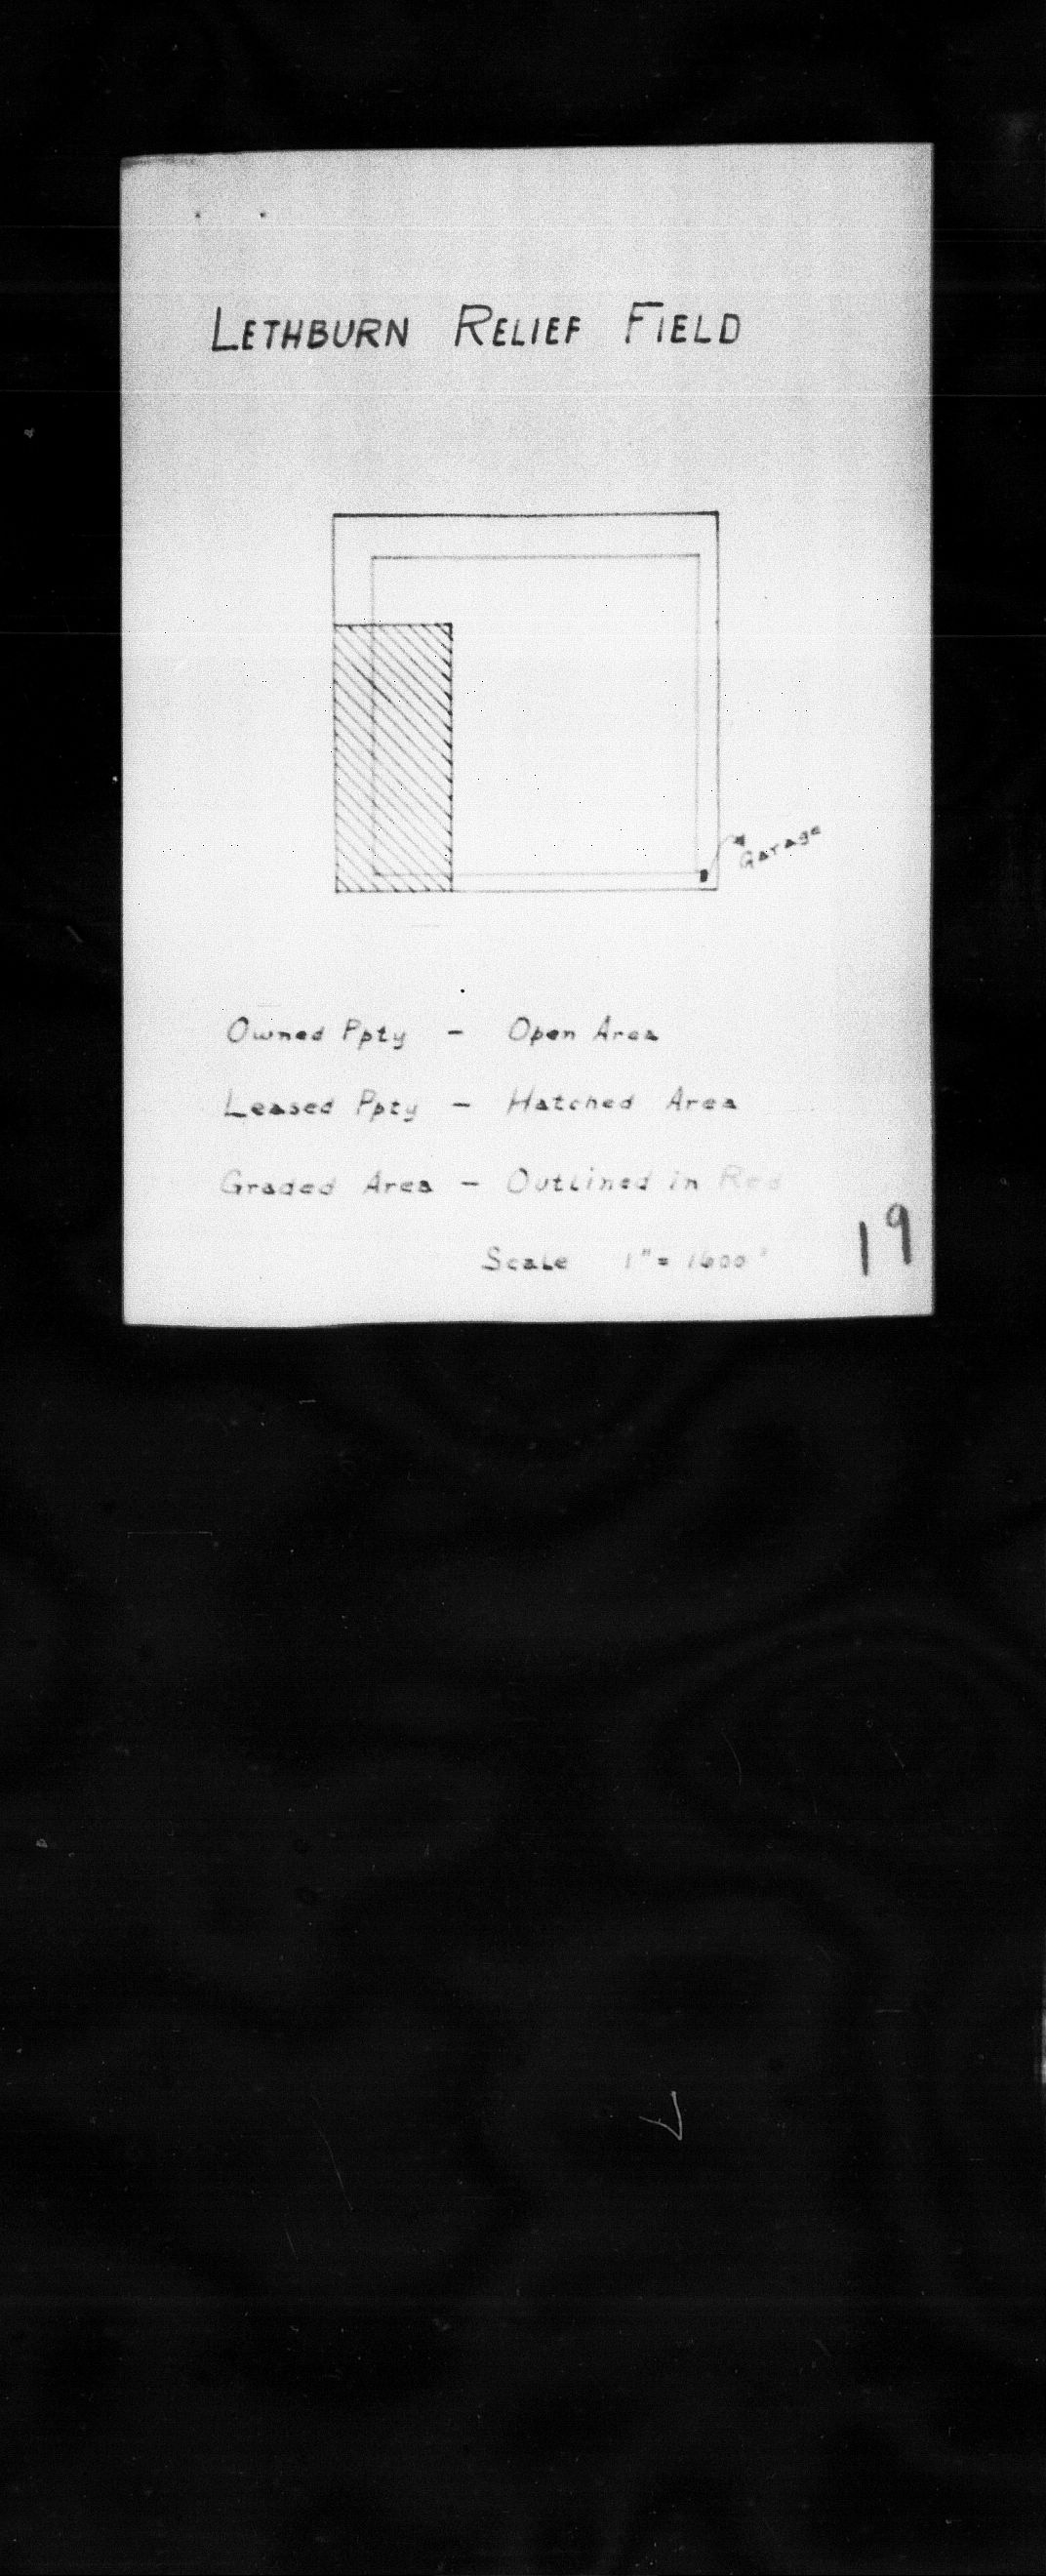 LETHBURN RELIEF FIELD
Garage
Owned Ppty - Open Area
Leased Ppty - Hatched Area
Graded Area - Outlined in Red
Scale 1" = 1600'
19